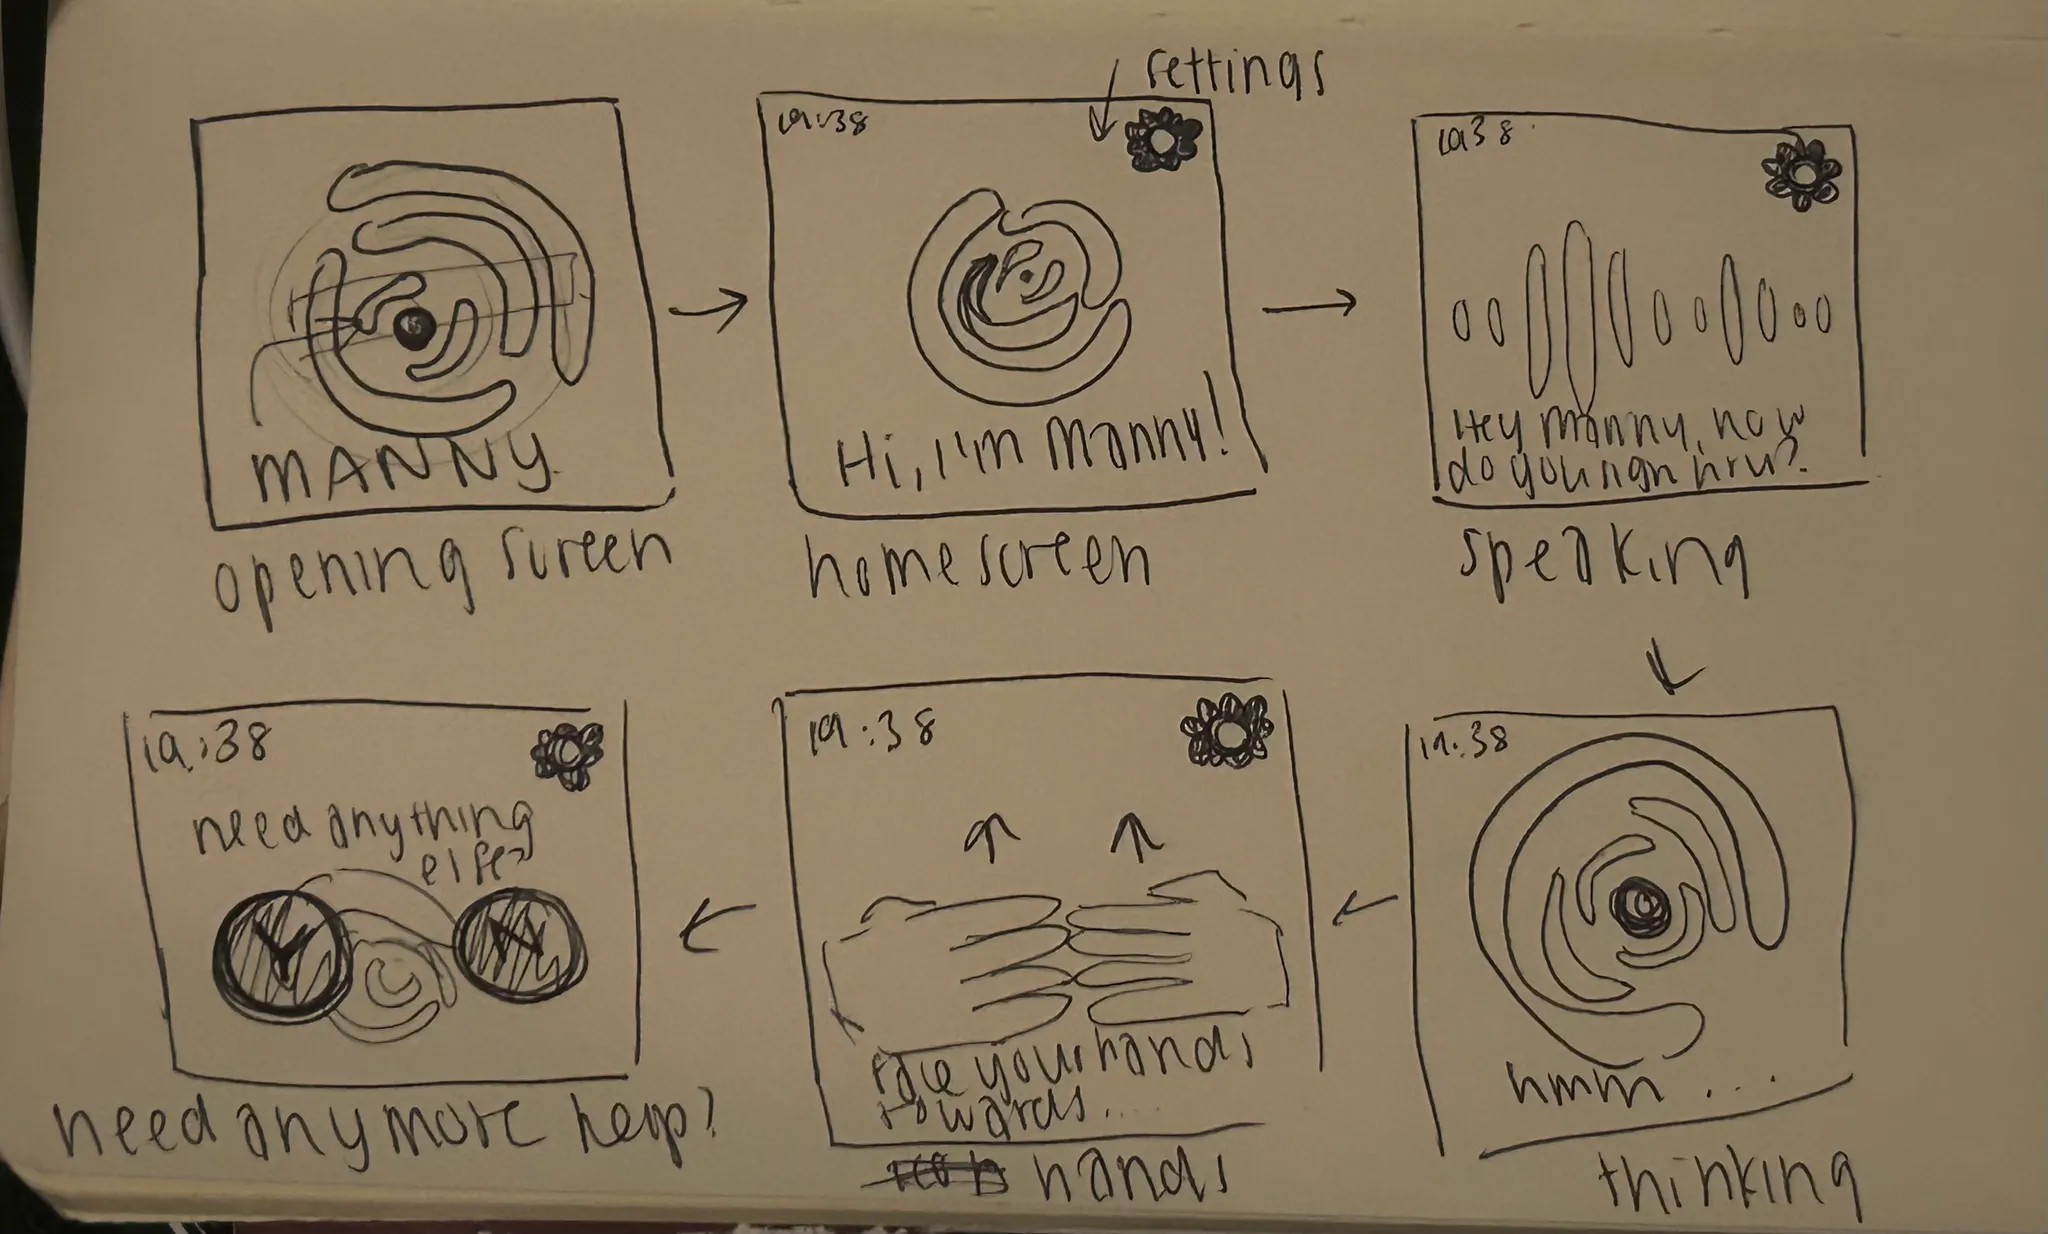 settings
MANNY
opening screen
19:38
Hi, I'm Manny!
homescreen
1938
Hey Manny, how
do you sign hru?
speaking
19:38
need anything
else?
Y
N
need anymore help?
19:38
face your hands
towards....
hands
19:38
hmm ...
thinking